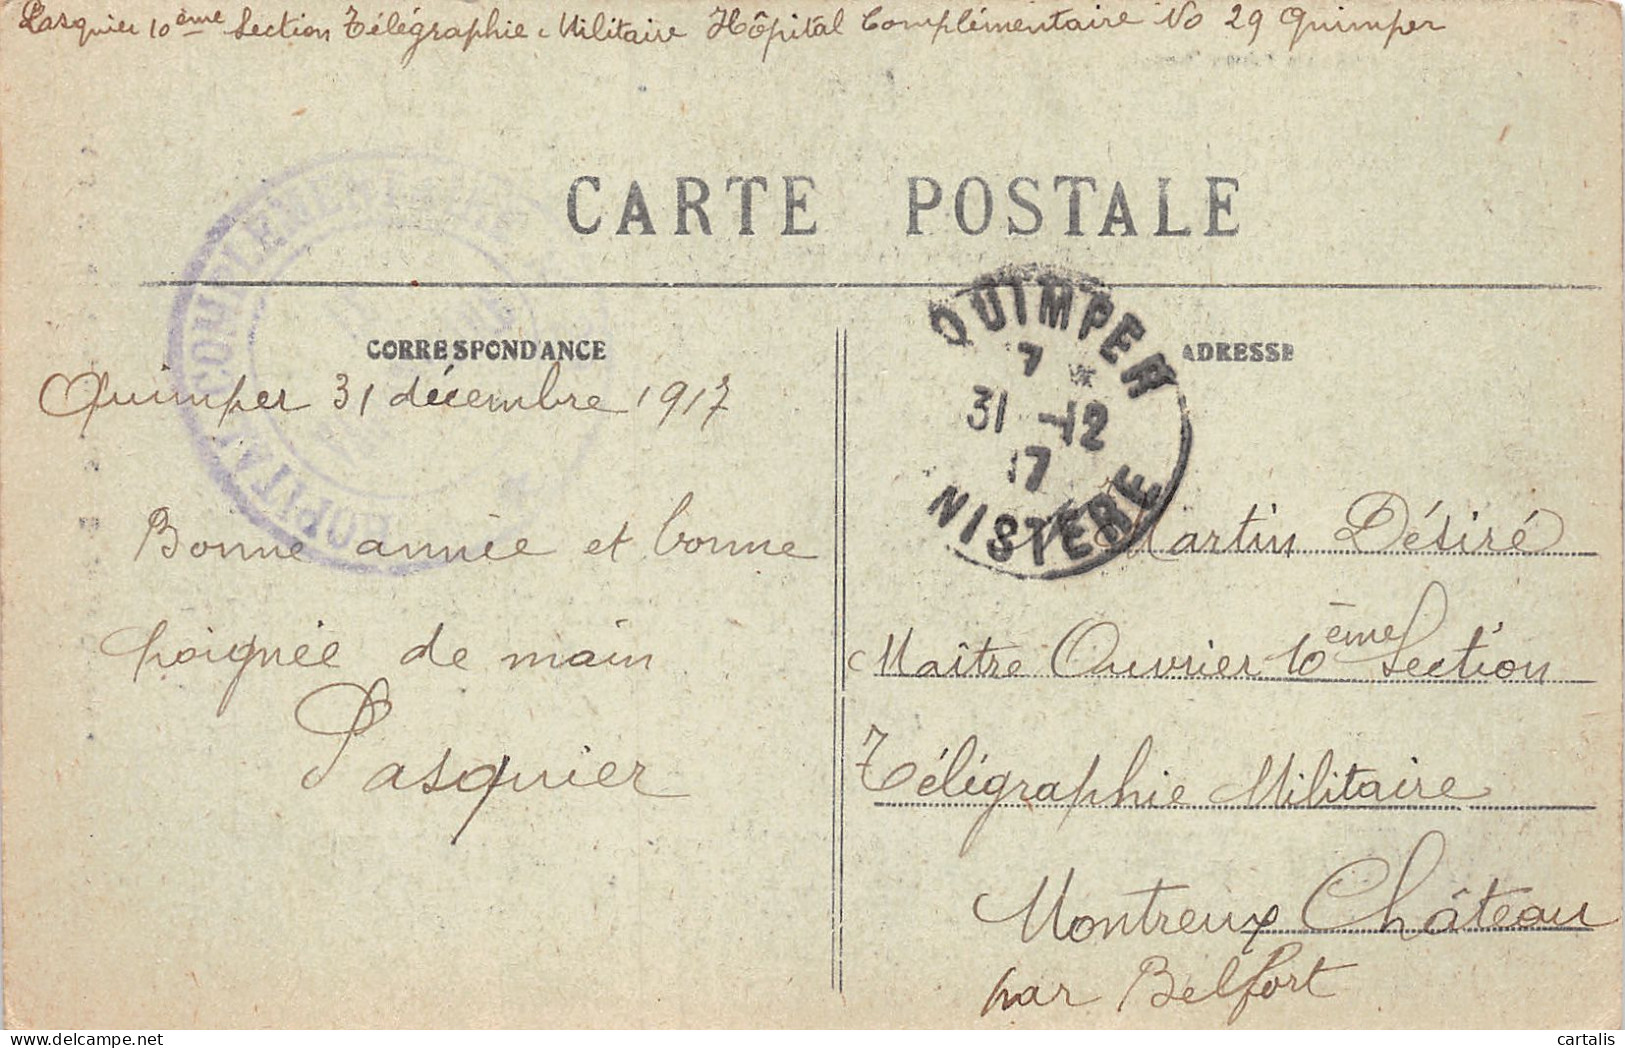 Pasquier 10ème Section Télégraphie Militaire Hôpital Complémentaire No 29 Quimper
CARTE POSTALE
HOPITAL COMPLEMENTAIRE
CORRESPONDANCE
Quimper 31 décembre 1917
Bonne année et bonne
poignée de main
Pasquier
QUIMPER
7 *
31 -12
17
NISTERE
ADRESSE
Martin Désiré
Maître Ouvrier 10ème Section
Télégraphie Militaire
Montreux Château
par Belfort
cartalis